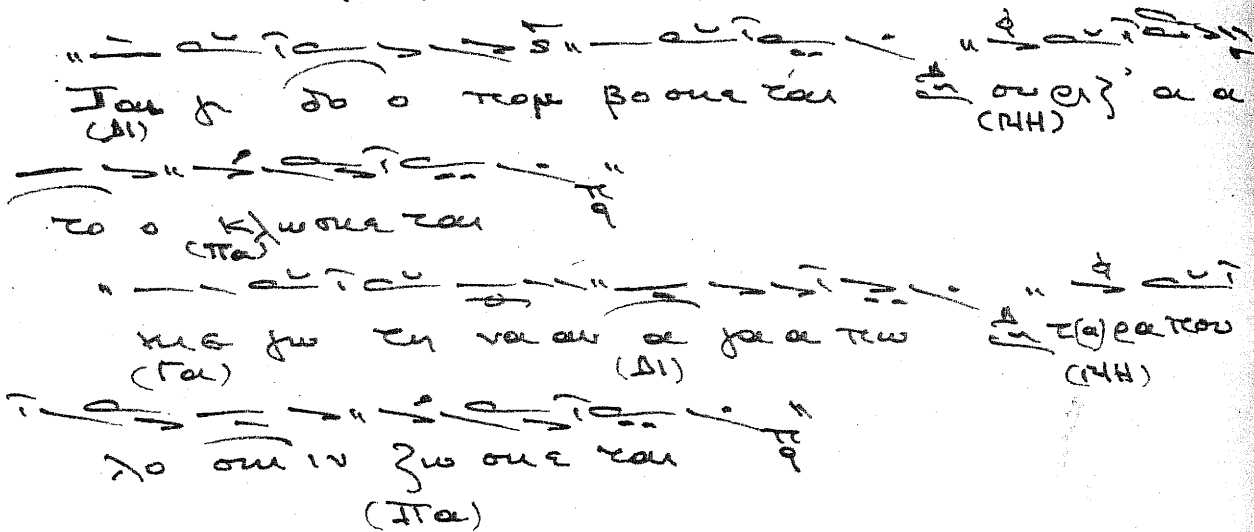 Παι γι δο ο πομ βο σκε ται συ ρι ζ' α α
(ΔΙ) (ΝΗ)
το ο κλω σκε ται
(Πα)
κι ε γω τη να αν α γα α πω τ(α) ρα που
(Γα) (ΔΙ) (ΝΗ)
λο σκι ιν ζω σκε ται
(Πα)